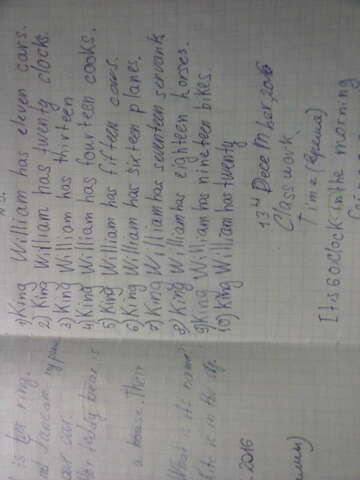 1) King William has eleven cars.
2) King William has twenty clocks.
3) King William has thirteen
4) King William has fourteen cooks.
5) King William has fifteen cows.
6) King William has sixteen planes.
7) King William has seventeen servants
8) King William has eighteen horses.
9) King William has nineteen bikes.
10) King William has twenty
13th December, 2016
Classwork
Time (время)
It is 6 o Clock in the morning
is for ring.
our car.
teddy bear is
a house. Their
What is the name
2016